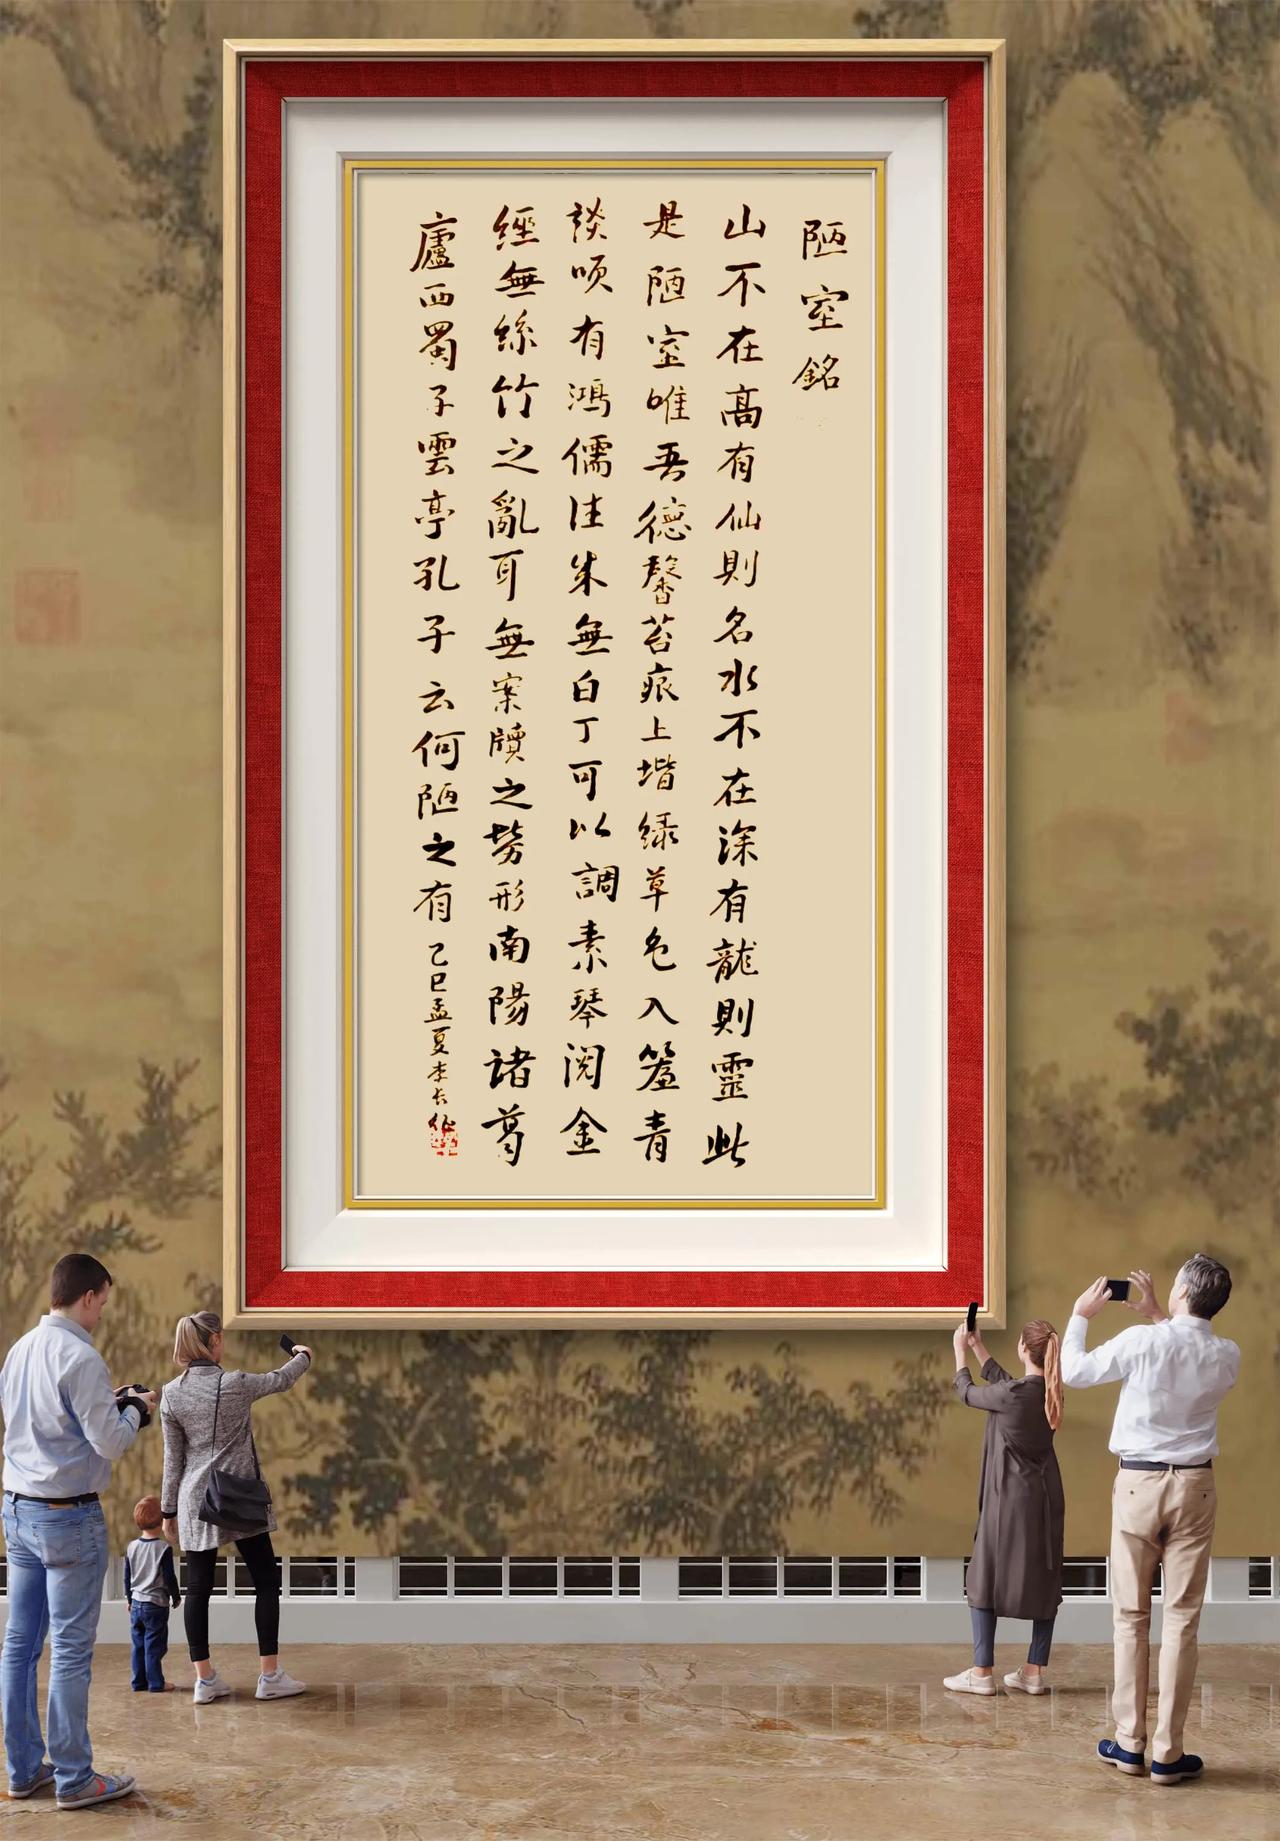 陋室銘
山不在高有仙則名水不在深有龍則靈此
是陋室唯吾德馨苔痕上堦绿草色入簾青
談咲有鴻儒往来無白丁可以調素琴阅金
經無絲竹之亂耳無案牘之勞形南陽諸葛
廬西蜀子雲亭孔子云何陋之有乙巳孟夏李长